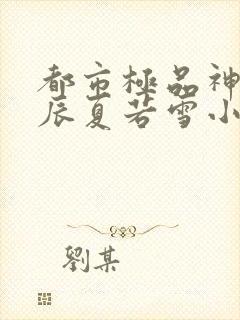 都市極品神
辰夏若雪小
劉某